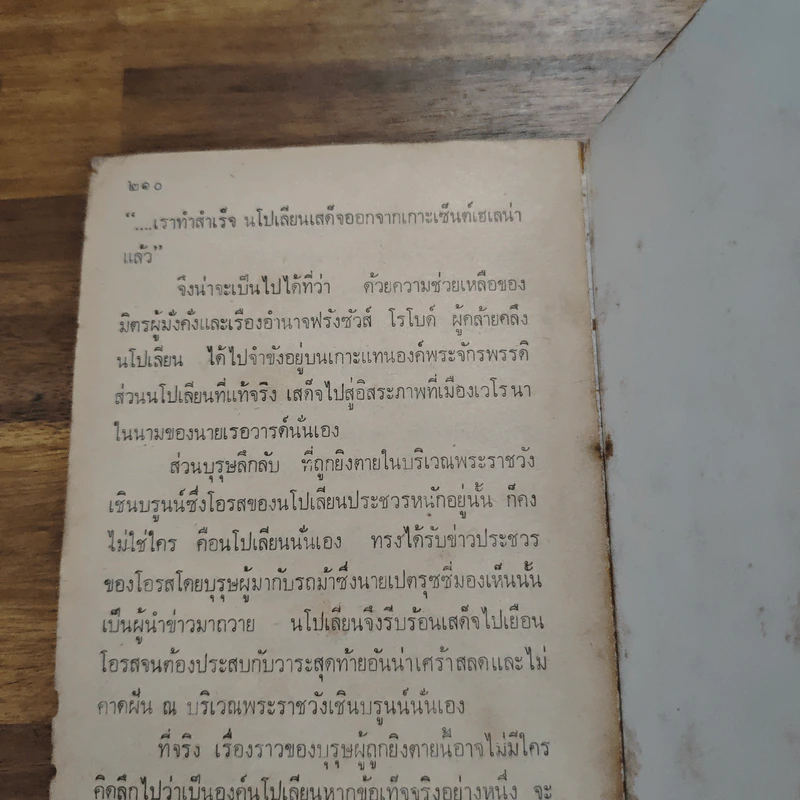 ๒๑๐
“....เราทำสำเร็จ นโปเลียนเสด็จออกจากเกาะเซ็นต์เฮเลน่า
แล้ว”
จึงน่าจะเป็นไปได้ที่ว่า ด้วยความช่วยเหลือของ
มิตรผู้มั่งคั่งและเรืองอำนาจฟรังซัวส์ โรโบด์ ผู้คล้ายคลึง
นโปเลียน ได้ไปจำขังอยู่บนเกาะแทนองค์พระจักรพรรดิ
ส่วนนโปเลียนที่แท้จริง เสด็จไปสู่อิสระภาพที่เมืองเวโรนา
ในนามของนายเรอวารด์นั่นเอง
ส่วนบุรุษลึกลับ ที่ถูกยิงตายในบริเวณพระราชวัง
เชินบรูนน์ซึ่งโอรสของนโปเลียนประชวรหนักอยู่นั้น ก็คง
ไม่ใช่ใคร คือนโปเลียนนั่นเอง ทรงได้รับข่าวประชวร
ของโอรสโดยบุรุษผู้มากับรถม้าซึ่งนายเปตรุซซี่มองเห็นนั้น
เป็นผู้นำข่าวมาถวาย นโปเลียนจึงรีบร้อนเสด็จไปเยือน
โอรสจนต้องประสบกับวาระสุดท้ายอันน่าเศร้าสลดและไม่
คาดฝัน ณ บริเวณพระราชวังเชินบรูนน์นั่นเอง
ที่จริง เรื่องราวของบุรุษผู้ถูกยิงตายนี้อาจไม่มีใคร
คิดลึกไปว่าเป็นองค์นโปเลียนหากข้อเท็จจริงอย่างหนึ่ง จะ